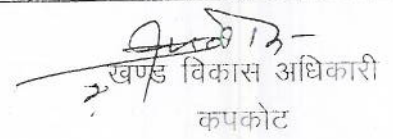 खण्ड विकास अधिकारी
कपकोट